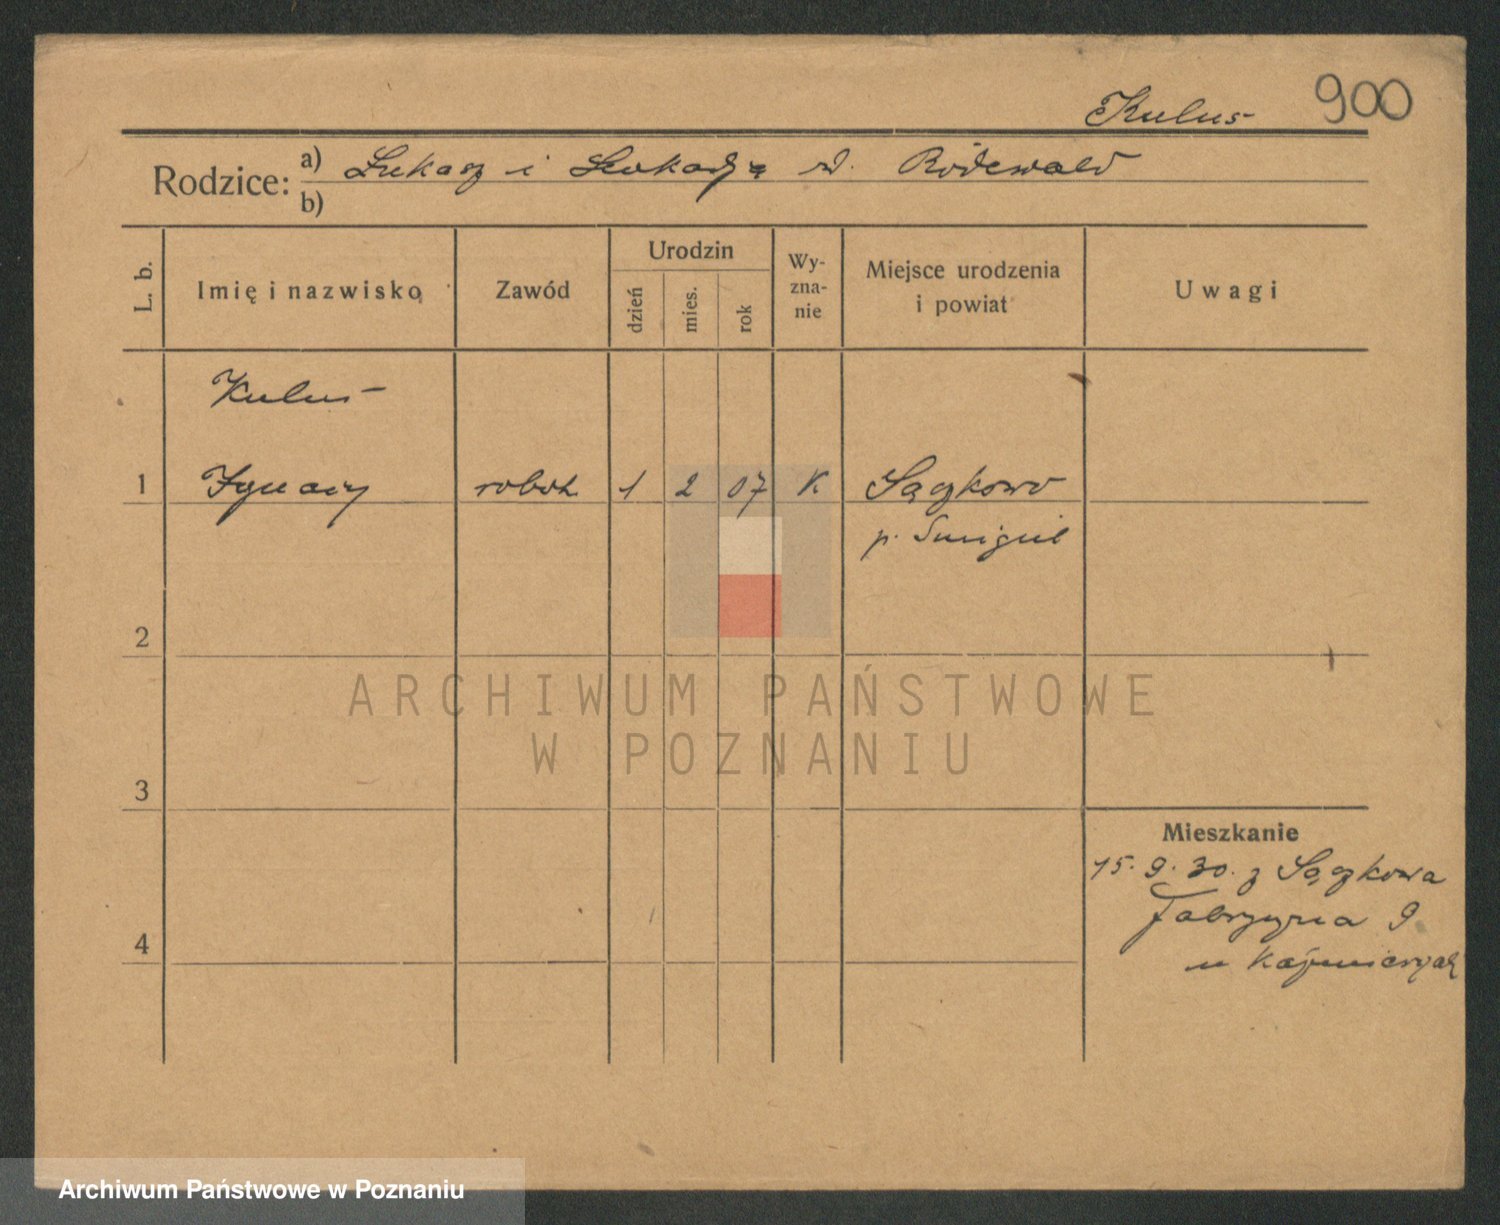 Kulus 900
Rodzice: a) Łukasz i Leokadja ur. Rödewald
b)
L. b. Imię i nazwisko Zawód Urodzin dzień mies. rok Wy-zna-nie Miejsce urodzenia i powiat Uwagi
Kulus
1 Ignacy robot. 1 2 07 K Sączkowo
p. Śmigiel
2
ARCHIWUM PAŃSTWOWE
W POZNANIU
3
Mieszkanie
15. 9. 30. z Sączkowa
Fabryczna 9
4
u Kaźmierczak
Archiwum Państwowe w Poznaniu